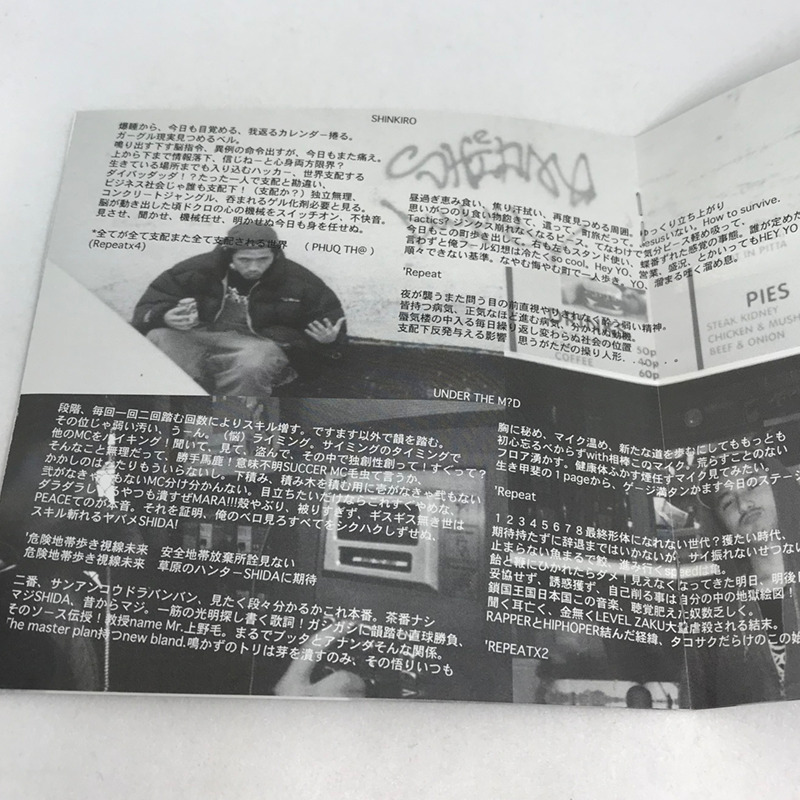 SHINKIRO
爆睡から、今日も目覚める、我返るカレンダー捲る。
ガーグル現実見つめるベル。
鳴り出す下す脳指令、異例の命令出すが、今日もまた痛え。
上から下まで情報落下、信じねーと心身両方限界？
生きている場所までも入り込むハッカー、世界支配する
ダイバッダッダ！？たった一人で支配と勘違い、
ビジネス社会じゃ誰も支配下！（支配か？）独立無理、
コンクリートジャングル、呑まれるゲル化剤必要と見る。
脳が動き出した頃ドクロの心の機械をスイッチオン、不快音。
見させ、聞かせ、機械任せ、明かせぬ今日も身を任せぬ。
*全てが全て支配また全て支配される世界　（PHUQ TH@）
(Repeatx4)
昼過ぎ恵み食い、焦り汗拭い、再度見つめる周囲。
思いがつのり食い物飽きて、這って、町旅だって。
Tacticsやジンクス崩れなくなるピース、てなわけで
今日もこの町歩き出して、右も左もスタンド使い、
言わずと俺フール幻想は冷たくso cool, Hey YO,
順々できない基準。なやむ悔やむ町で一人歩き。YO,
'Repeat
夜が襲うまた問う目の前直視やりきれなく酔う弱い精神。
皆持つ病気、正気なほど進む病気、分かれぬ動機。
蜃気楼の中入る毎日繰り返し変わらぬ社会の位置
支配下反発与える影響　思うがただの操り人形.
ゆっくり立ち上がり
Jesusいない。How to survive.
気分ピース軽め吸って、
蝶番ずれた感覚の事態。誰が定めた
営業、盛況、とかいってもHEY YO
溜まる嘆く溜め息。
IN PITTA
PIES
STEAK KIDNEY
CHICKEN & MUSH
BEEF & ONION
COFFEE
50p
40p
60p
UNDER THE M?D
段階、毎回一回二回踏む回数によりスキル増す。ですます以外で韻を踏む。
その位じゃ弱い汚い、うーん。（悩）ライミング。サイミングのタイミングで
他のMCをバイキング！聞いて、見て、盗んで、その中で独創性創って！すくって？
そんなこと無理だって、勝手馬鹿！意味不明SUCCER MC毛虫て言うか、
かかしのは
たりもういらないし。下積み、積み木を積む用に壱がなきゃ弐もない
弐がなきゃ
もないMC分け分かんない。目立ちたいだけならこれすぐやめな、
ダラダラし
るやつも潰すぜMARA!!!殻やぶり、被りすぎず、ギスギス無き世は
PEACEてのが本音。それを証明、俺のベロ見ろすべてをシクハクしずせぬ、
スキル斬れるヤバメSHIDA!
'危険地帯歩き視線未来　安全地帯放棄所詮見ない
危険地帯歩き視線未来　草原のハンターSHIDAに期待
二番、サンアンコウドラバンバン、見たく段々分かるかこれ本番。茶番ナシ
マジSHIDA、昔からマジ。一筋の光明探し書く歌詞！ガシガシに韻踏む直球勝負、
そのソース伝授！教授name Mr.上野毛。まるでブッタとアナンダそんな関係。
The master plan持つnew bland.鳴かずのトリは芽を潰すのみ、その悟りいつも
胸に秘め、マイク温め、新たな道を歩むにしてももっとも
初心忘るべからずwith相棒このマイク。荒らすことのない
フロア湧かす。健康体ふかす煙任すマイク見てみたい。
生き甲斐の１pageから、ゲージ満タンかます今日のステージ
'Repeat
１２３４５６７８最終形体になれない世代？獲たい時代、
期待持たずに辞退まではいかないが、サイ振れないせつない
止まらない魚まるで鮫、進み行くspeedは亀。
飴と鞭にひかれたらダメ！見えなくなってきた明日、明後日
妥協せず、誘惑獲ず、自己削る事は自分の中の地獄絵図！
鎖国王国日本国この音楽、聴覚肥えた奴数乏しく。
聞く耳亡く、金無くLEVEL ZAKU大量虐殺される結末。
RAPPERとHIPHOPER結んだ経緯、タコサクだらけのこの始
'REPEATX2